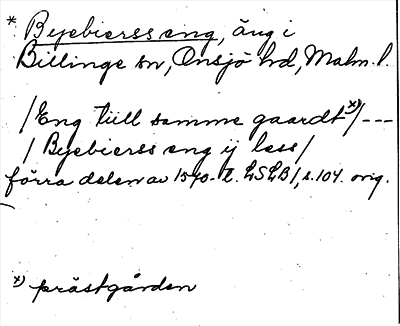 * Byebierss eng, äng i
Billinge sn, Onsjö hd, Malm. l.
/Eng tiill samme gaardt x)/---
/ Byebierss eng ij less/
förra delen av 1570-t. LSLB1, s. 104. orig.
x) prästgården